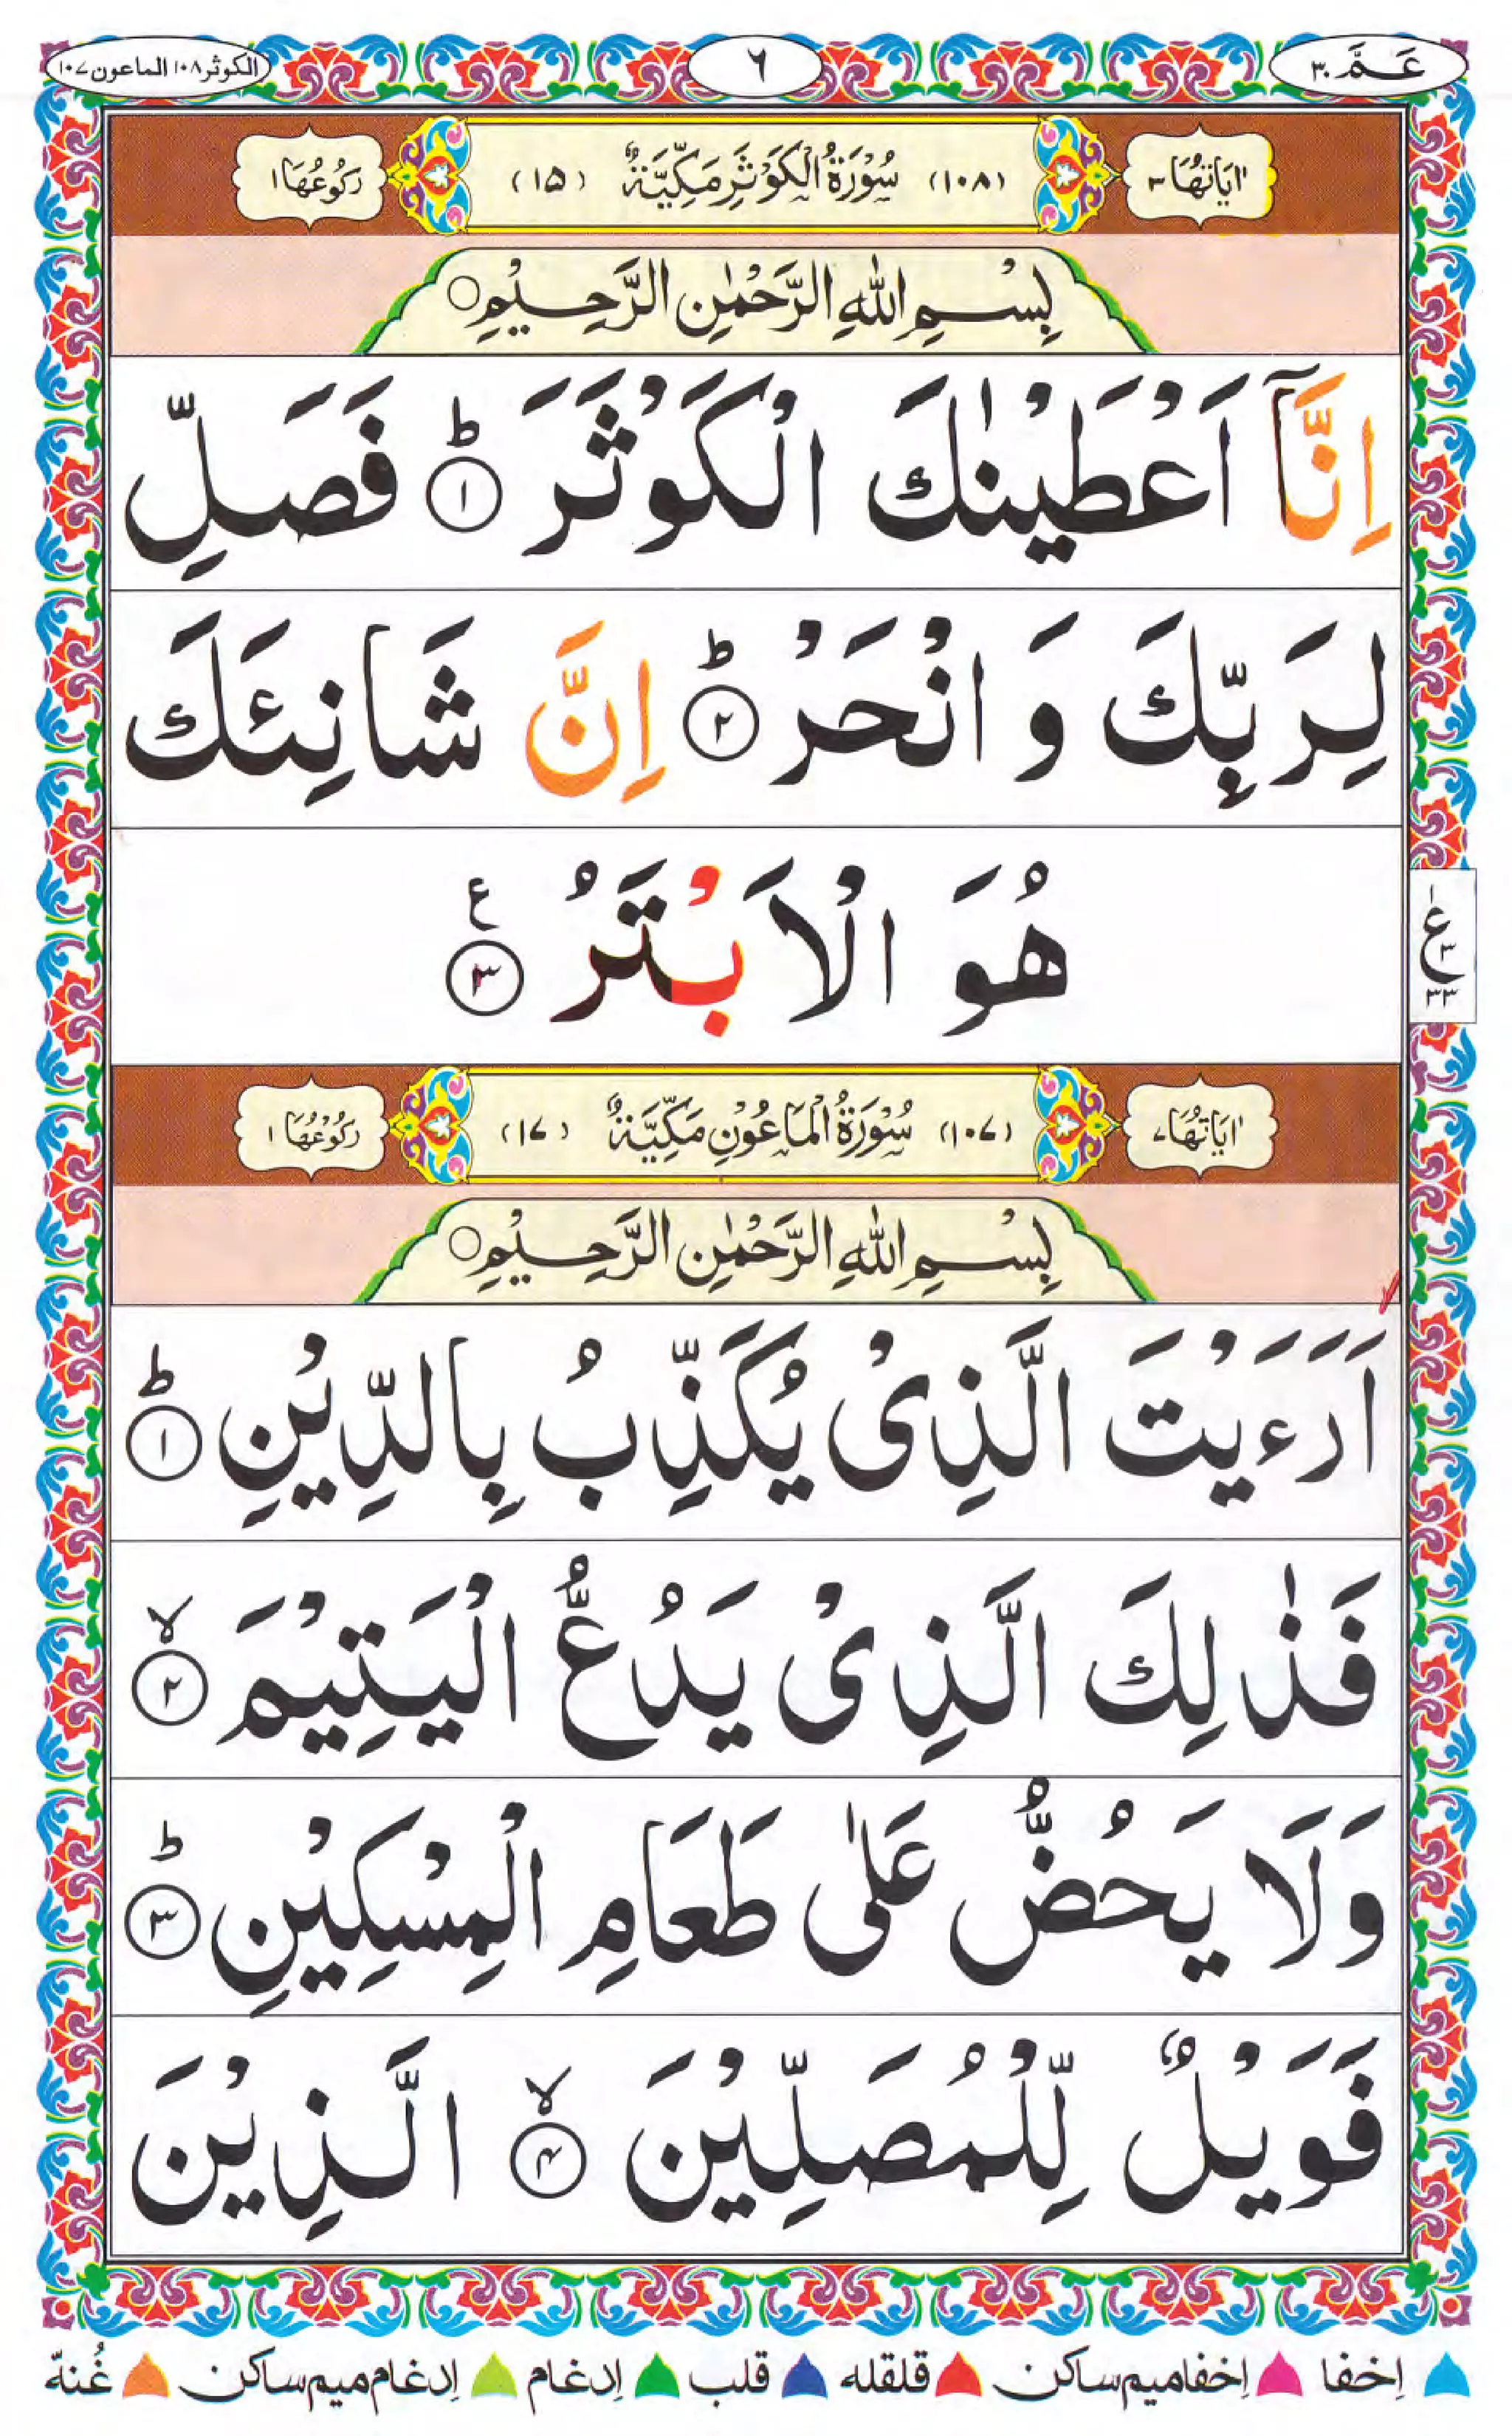 عَمَّ ٣٠
٦
الكوثر ١٠٨ الماعون ١٠٧
اٰيَاتُهَا ٣ (١٠٨) سُوْرَةُ الْكَوْثَرِ مَكِّيَّةٌ (١٥) رُكُوْعُهَا ١
بِسْمِ اللّٰهِ الرَّحْمٰنِ الرَّحِيْمِ ○
اِنَّاۤ اَعْطَيْنٰكَ الْكَوْثَرَ ؕ ١ فَصَلِّ
لِرَبِّكَ وَ انْحَرْ ؕ ٢ اِنَّ شَانِئَكَ
هُوَ الْاَبْتَرُ ٣ ع
ع ١ ٣ ٣٣
اٰيَاتُهَا ٧ (١٠٧) سُوْرَةُ الْمَاعُوْنِ مَكِّيَّةٌ (١٧) رُكُوْعُهَا ١
بِسْمِ اللّٰهِ الرَّحْمٰنِ الرَّحِيْمِ ○
اَرَءَيْتَ الَّذِىْ يُكَذِّبُ بِالدِّيْنِ ؕ ١
فَذٰلِكَ الَّذِىْ يَدُعُّ الْيَتِيْمَ ۙ ٢
وَلَا يَحُضُّ عَلٰى طَعَامِ الْمِسْكِيْنِ ؕ ٣
فَوَيْلٌ لِّلْمُصَلِّيْنَ ۙ ٤ الَّذِيْنَ
اِخفا اِخفا میم ساکن قلقله قلب اِدغام اِدغام میم ساکن غُنه